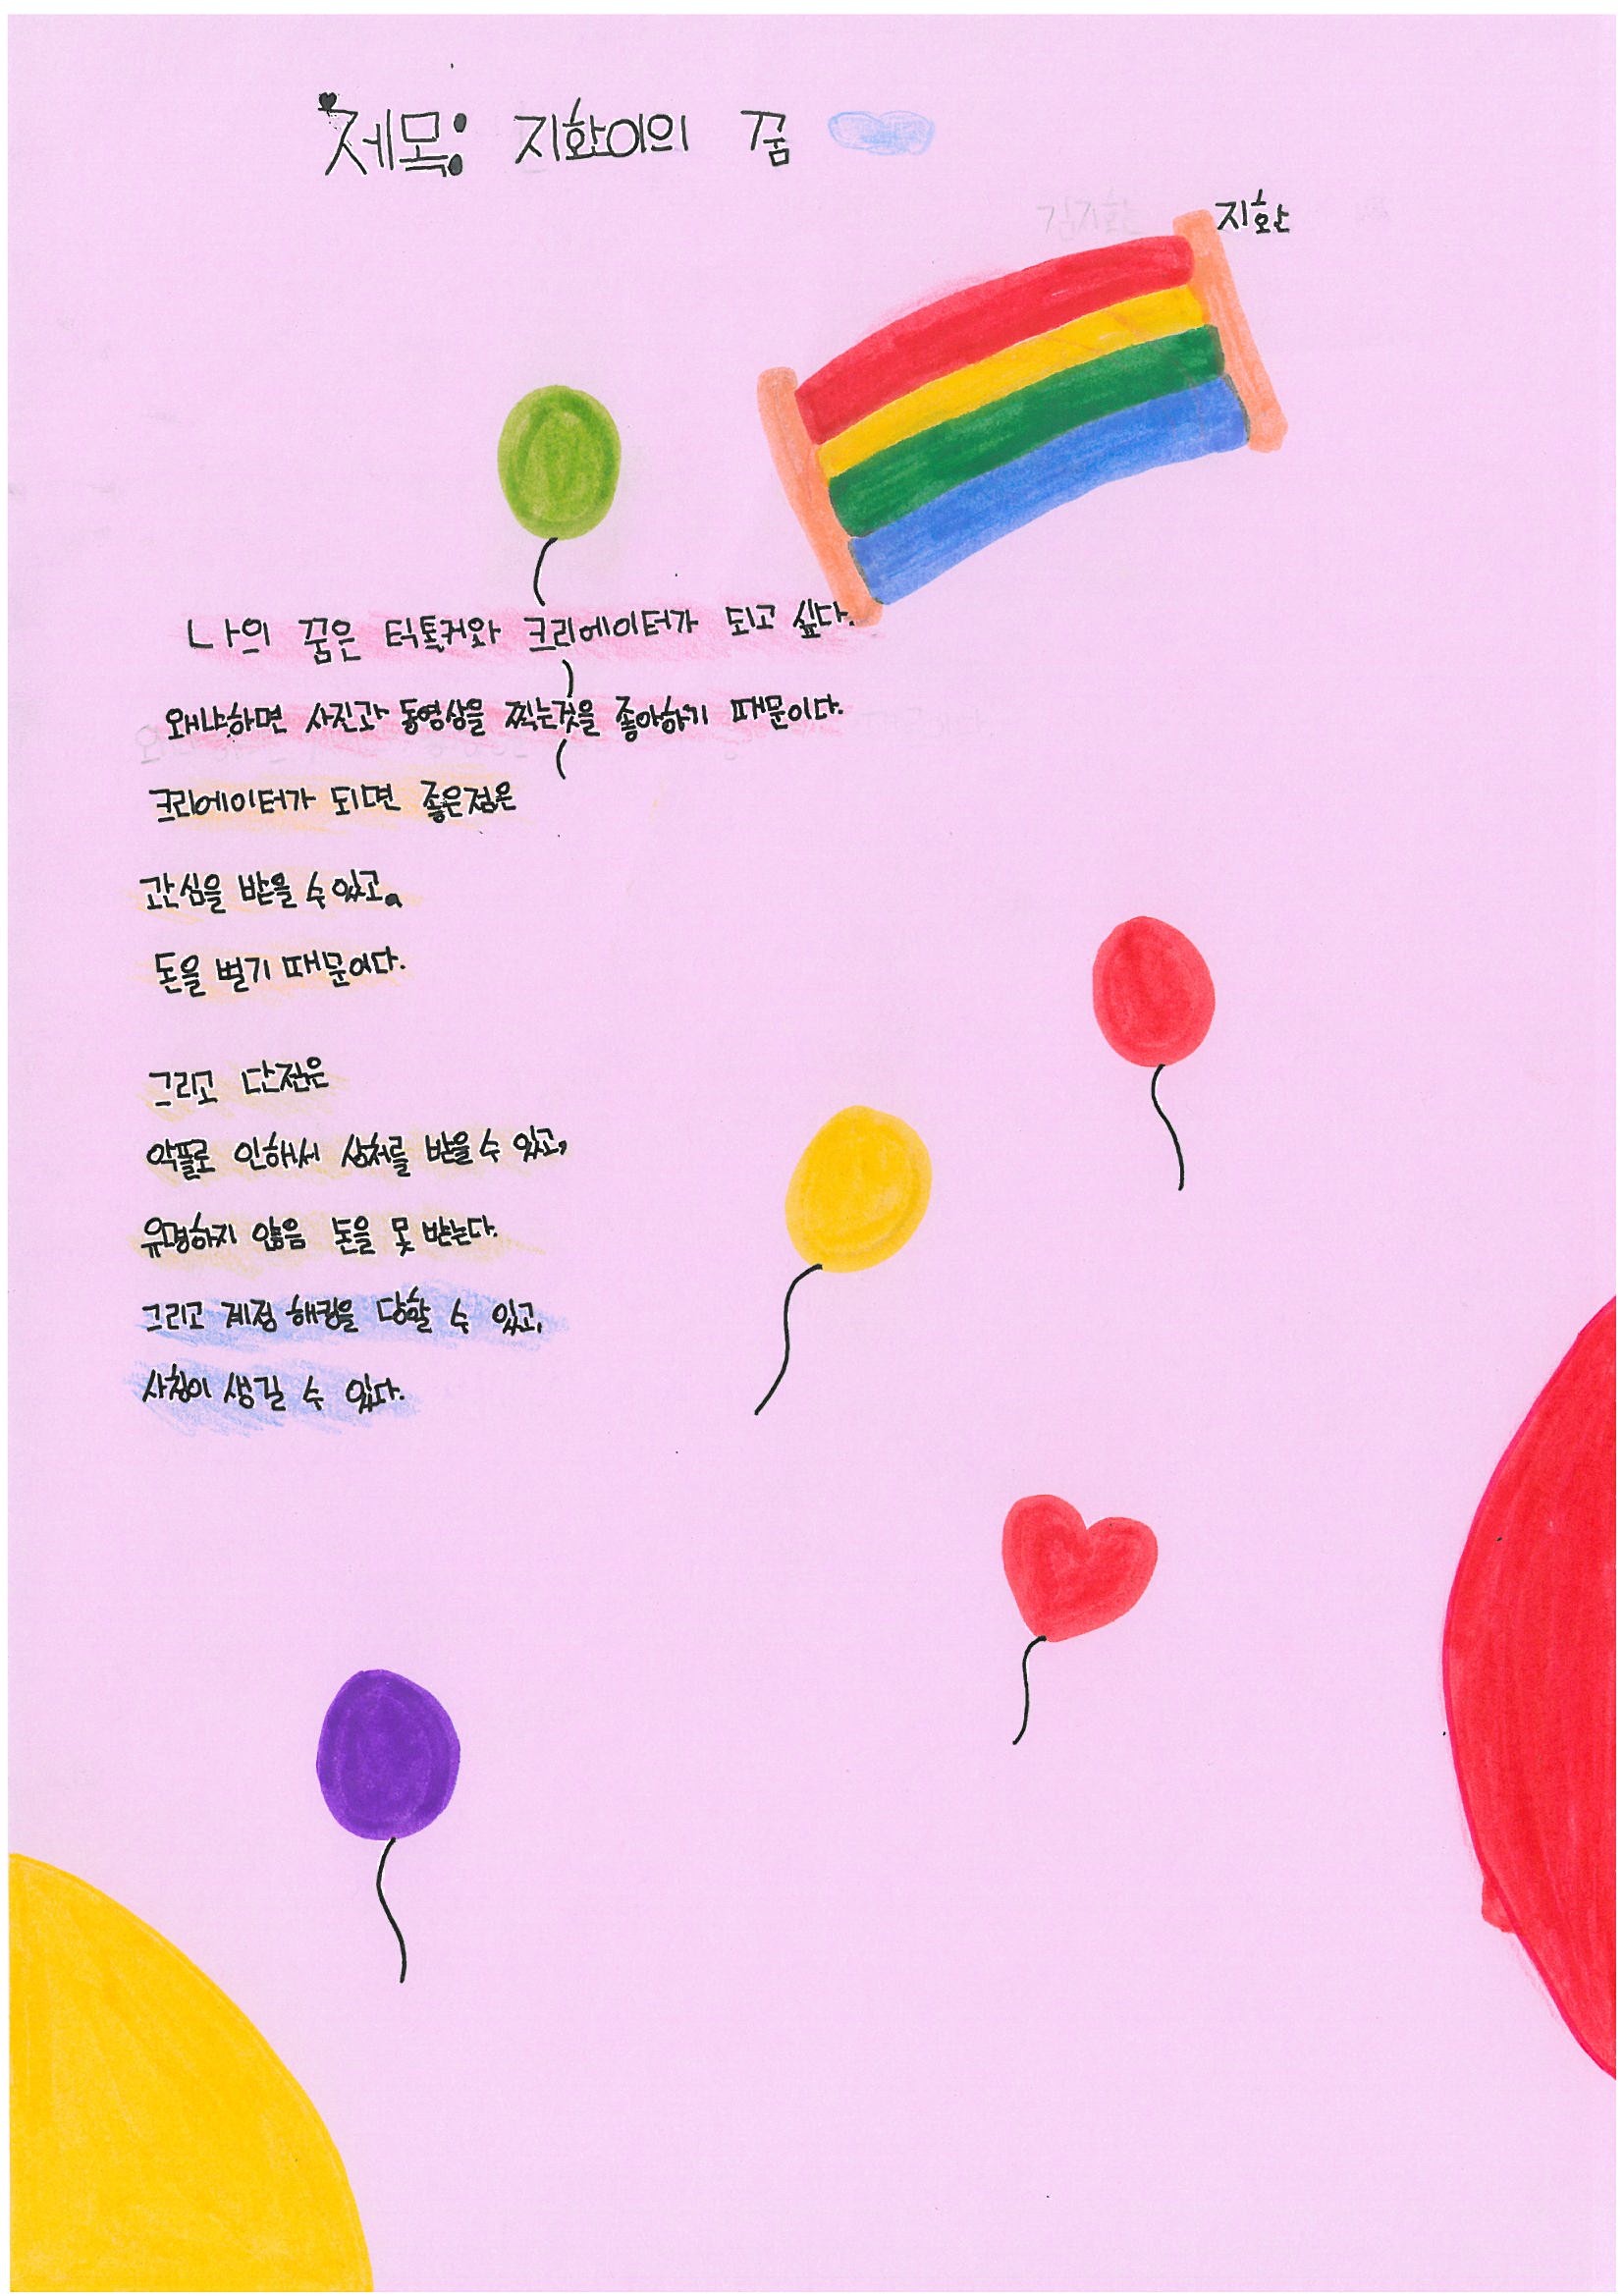 제목: 지환이의 꿈
지환
나의 꿈은 틱톡커와 크리에이터가 되고 싶다.
왜냐하면 사진과 동영상을 찍는것을 좋아하기 때문이다.
크리에이터가 되면 좋은점은
관심을 받을 수 있고.
돈을 벌기 때문이다.
그리고 단점은
악플로 인해서 상처를 받을 수 있고,
유명하지 않음 돈을 못 받는다.
그리고 계정 해킹을 당할 수 있고,
사칭이 생길 수 있다.